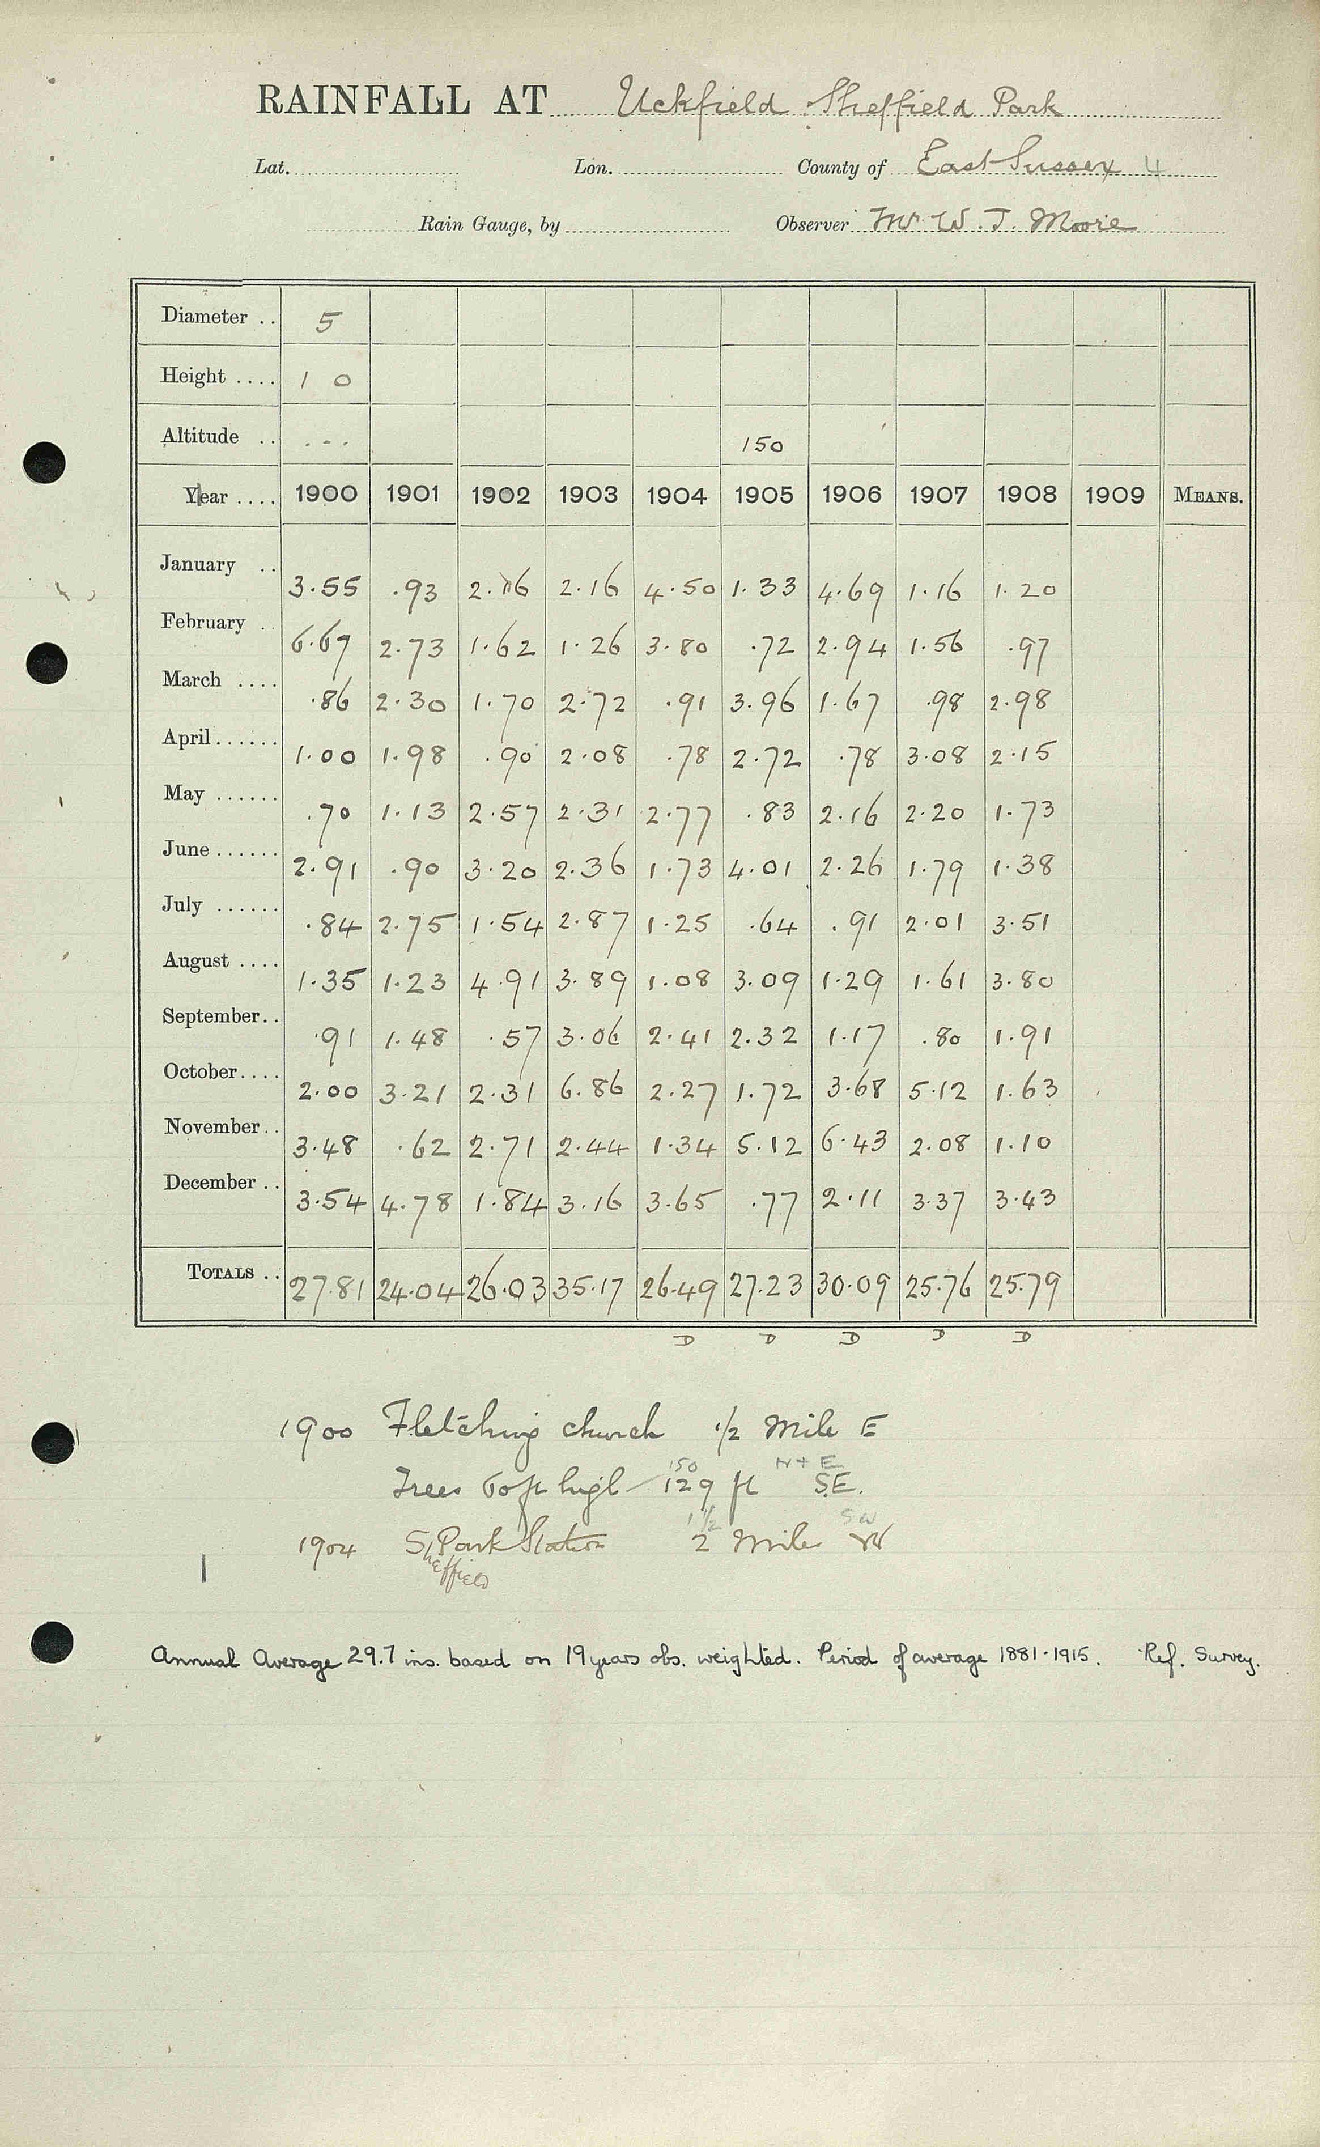 RAINFALL AT Uckfield Sheffield Park
Lat. Lon. County of East Sussex 4
Rain Gauge, by Observer Mr W. J. Moore
Diameter .. 5
Height .... 1 0
Altitude .. ... 150
Year .... 1900 1901 1902 1903 1904 1905 1906 1907 1908 1909 MEANS.
January .. 3.55 .93 2.16 2.16 4.50 1.33 4.69 1.16 1.20
February . 6.67 2.73 1.62 1.26 3.80 .72 2.94 1.56 .97
March .... .86 2.30 1.70 2.72 .91 3.96 1.67 .98 2.98
April...... 1.00 1.98 .90 2.08 .78 2.72 .78 3.08 2.15
May ...... .70 1.13 2.57 2.31 2.77 .83 2.16 2.20 1.73
June ...... 2.91 .90 3.20 2.36 1.73 4.01 2.26 1.79 1.38
July ...... .84 2.75 1.54 2.87 1.25 .64 .91 2.01 3.51
August .... 1.35 1.23 4.91 3.89 1.08 3.09 1.29 1.61 3.80
September.. .91 1.48 .57 3.06 2.41 2.32 1.17 .80 1.91
October.... 2.00 3.21 2.31 6.86 2.27 1.72 3.68 5.12 1.63
November.. 3.48 .62 2.71 2.44 1.34 5.12 6.43 2.08 1.10
December .. 3.54 4.78 1.84 3.16 3.65 .77 2.11 3.37 3.43
TOTALS .. 27.81 24.04 26.03 35.17 26.49 27.23 30.09 25.76 25.79
D D D D D
1900 Fletching church 1/2 Mile E
150 N + E
Trees 60ft high 129 ft S.E.
1 1/2 SW
1904 S. Park Station 2 Mile W
Sheffield
Annual Average 29.7 ins. based on 19 years obs. weighted. Period of average 1881-1915. Ref. Survey.